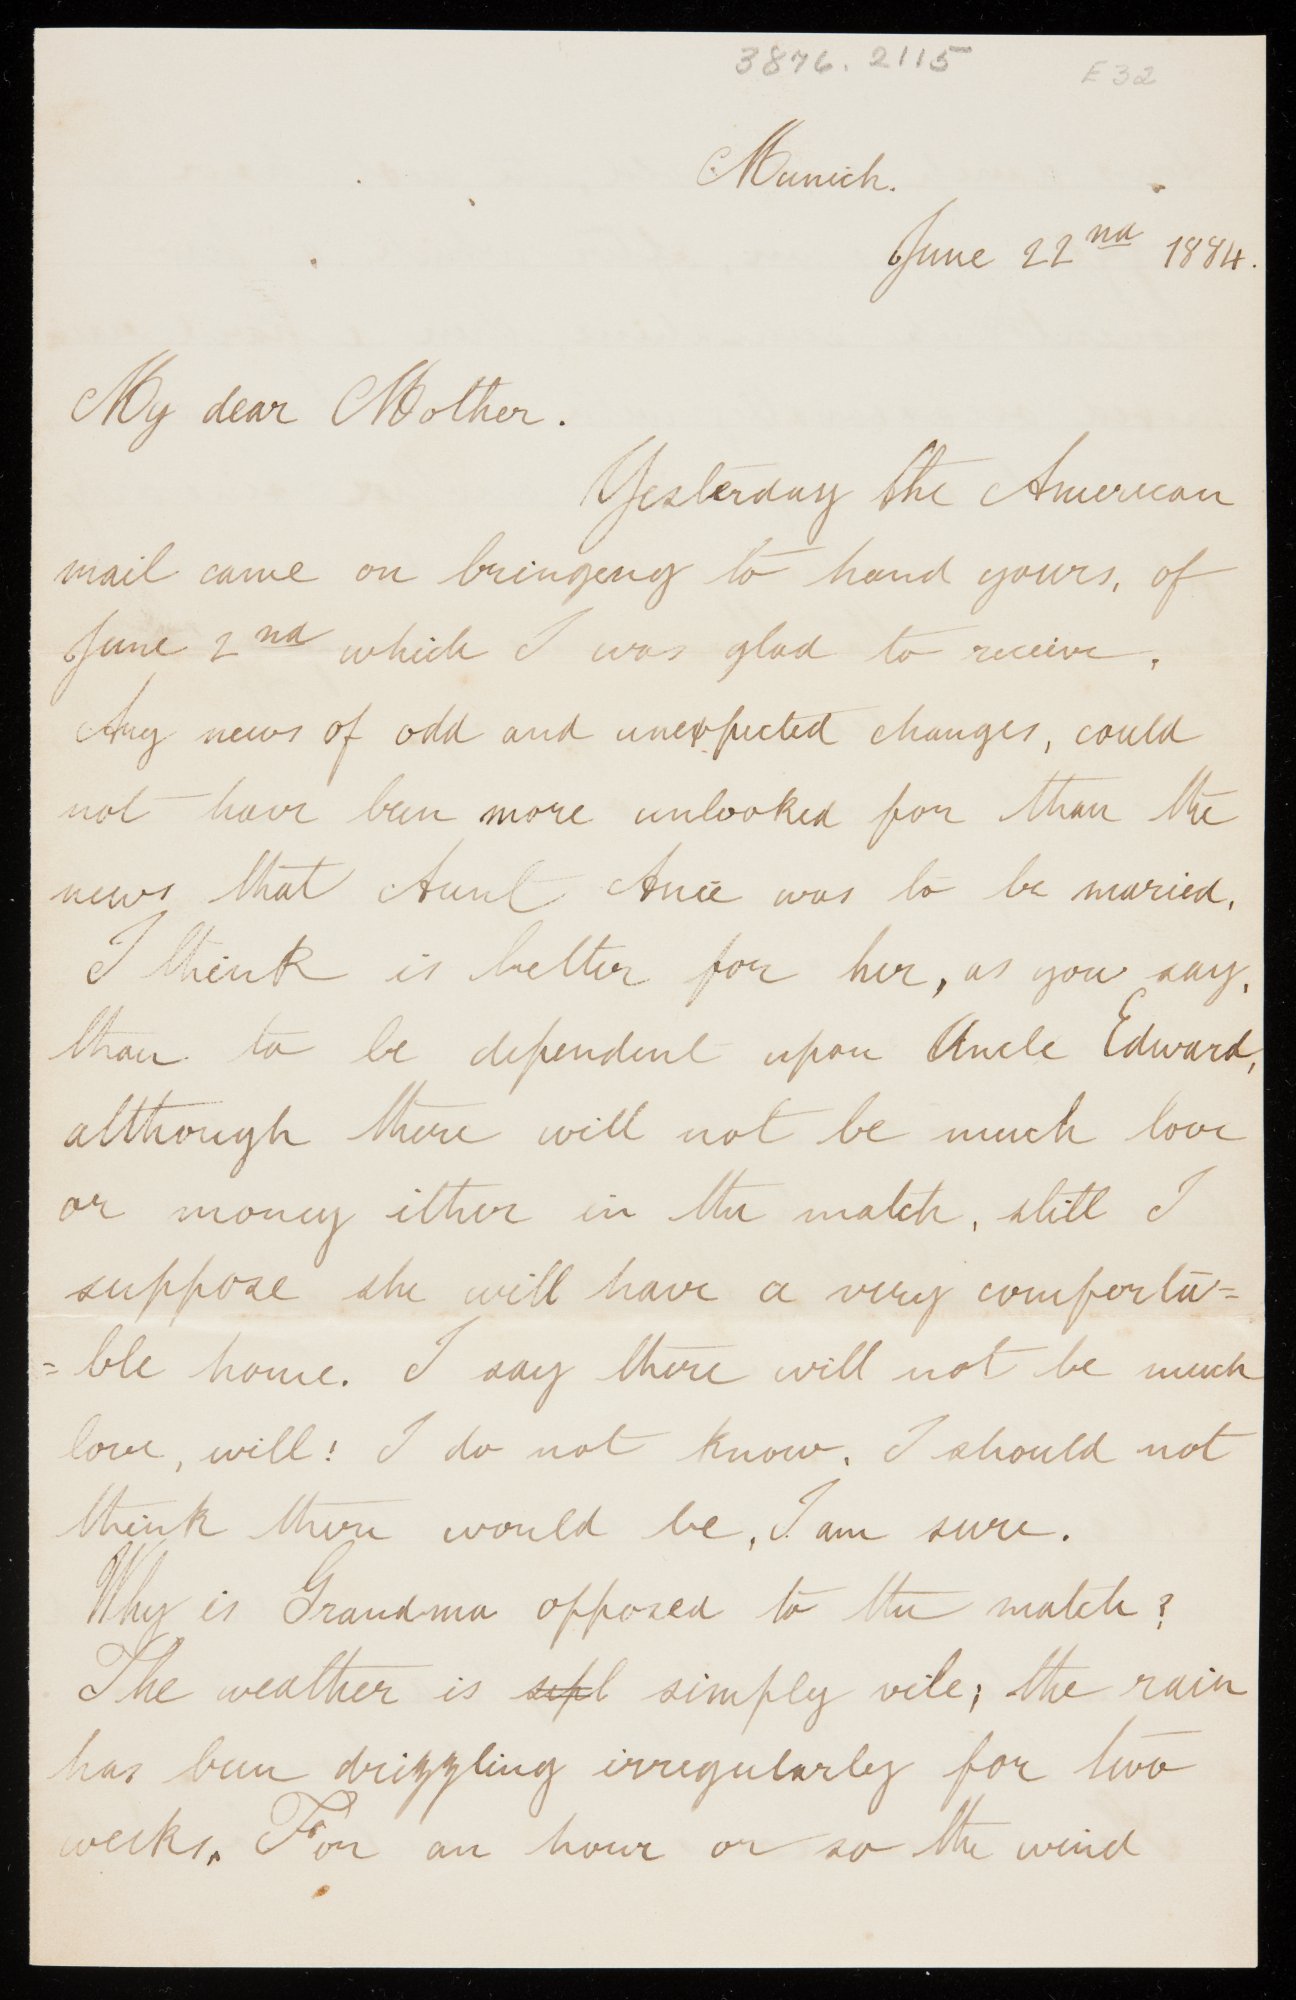 3876.2115
E32
Munich.
June 22nd 1884.
My dear Mother.
Yesterday the American
mail came on bringeng to hand yours, of
June 2nd which I was glad to receive.
Any news of odd and unexpected changes, could
not have been more unlooked for than the
news that Aunt Anie was to be maried.
I think is better for her, as you say,
than to be dependent upon Uncle Edward,
although there will not be much love
or money either in the match, still I
suppose she will have a very comforta=
=ble home. I say there will not be much
love, will! I do not know. I should not
think there would be, I am sure.
Why is Grandma opposed to the match?
The weather is simply vile; the rain
has been drizzling irregularly for two
weeks. For an hour or so the wind